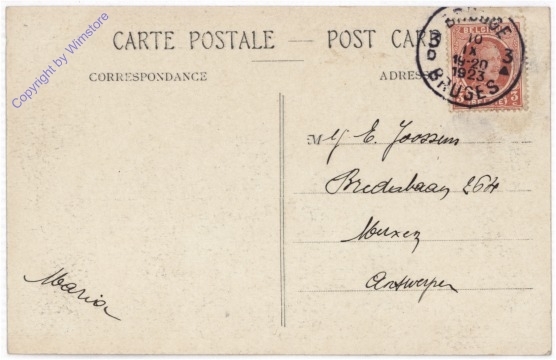 Copyright by Wimstore
CARTE POSTALE — POST CAR
CORRESPONDANCE
ADRESS
BRUGGE
10
IX
19-20
1923
BRUGES
3
D
3
BELG
M E. Joossens
Bredabaan 264
Merxem
Antwerpen
Maria